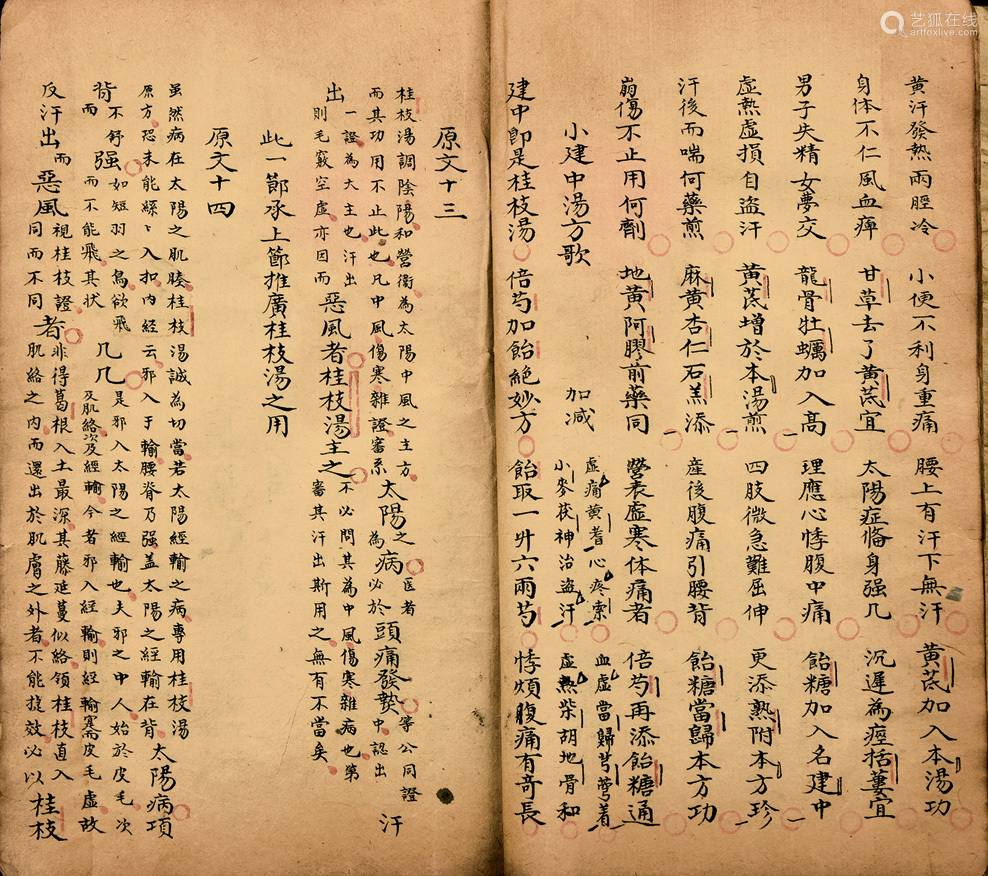 艺狐在线
artfoxlive.com
黄汗發熱兩脛冷 小便不利身重痛 腰上有汗下無汗 黄芪加入本湯功
身体不仁風血痺 甘草去了黄芪宜 太陽症俻身强几 沉遲為痙括蔞宜
男子失精女夢交 龍骨牡蠣加入髙 理應心悸腹中痛 飴糖加入名建中
虚熱虚損自盗汗 黄芪增於本湯煎 四肢微急難屈伸 更添熟附本方珍
汗後而喘何藥煎 麻黄杏仁石羔添 産後腹痛引腰背 飴糖當歸本方功
崩傷不止用何劑 地黄阿膠前藥同 營表虚寒体痛者 倍芍再添飴糖通
小建中湯方歌 加减 虚痛黄耆心疼索 血虚當歸芎䓖着
小麥茯神治盗汗 虚熱柴胡地骨和
建中即是桂枝湯 倍芍加飴絶妙方 飴取一升六兩芍 悸煩腹痛有奇長
原文十三
桂枝湯調陰陽和營衛為太陽中風之主方
而其功用不止此也凡中風傷寒雜證審系太陽之病醫者為必於頭痛發𤍠等公同證中認出汗
出一證為大主也汗出則毛竅空虚亦因而惡風者桂枝湯主之不必問其為中風傷寒雜病也第審其汗出斯用之無有不當矣
此一節承上節推廣桂枝湯之用
原文十四
雖然病在太陽之肌腠桂枝湯誠為切當若太陽經輸之病專用桂枝湯
原方恐未能絲絲入扣内經云邪入于輸腰脊乃强盖太陽之經輸在背太陽病項
背而不舒强如短羽之鳥欲飛而不能飛其状几几是邪入太陽之經輸也夫邪之中人始於皮毛次及肌絡次及經輸今者邪入經輸則經輸寔而皮毛虚故
反汗出而惡風視桂枝證同而不同者非得葛根入土最深其藤延蔓似絡領桂枝直入肌絡之内而還出於肌膚之外者不能捷效必以桂枝